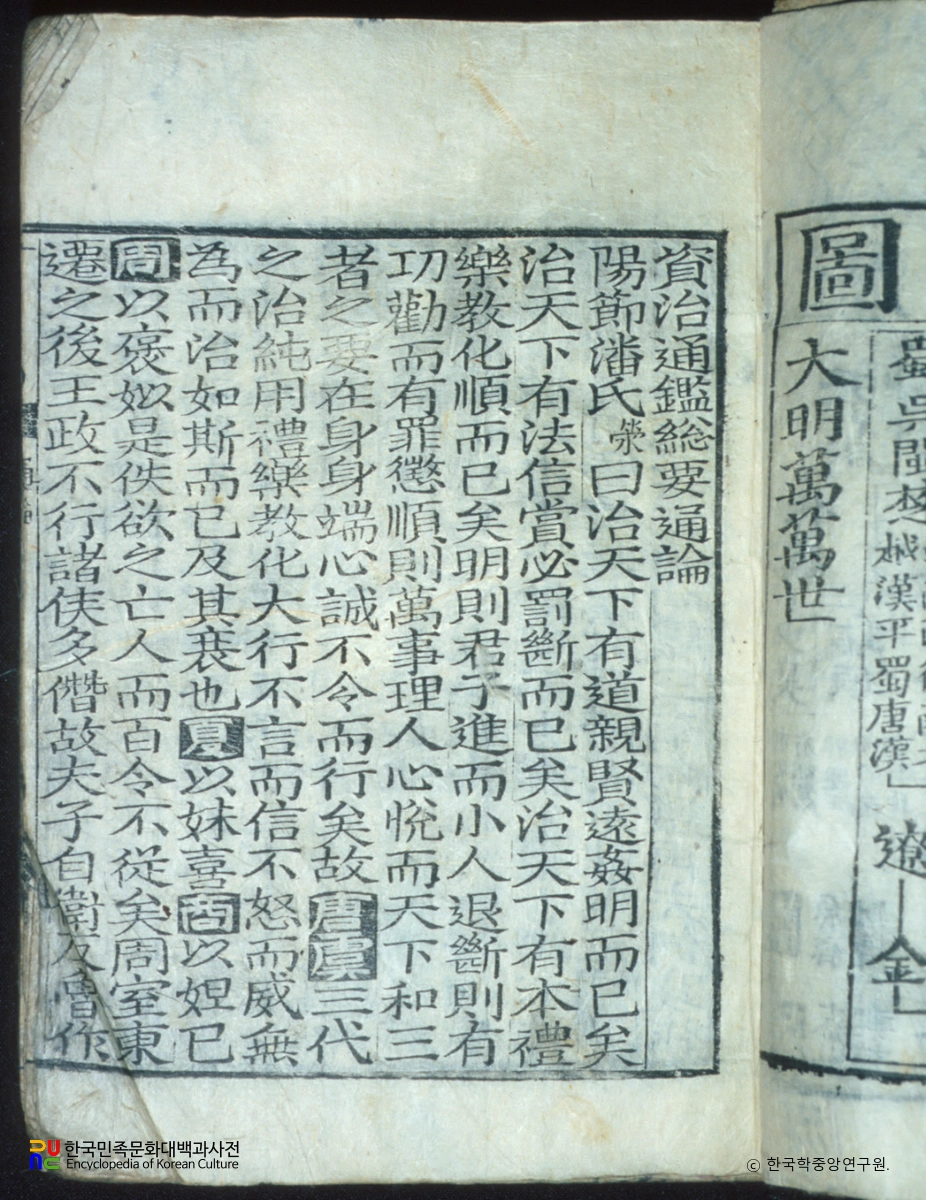 資治通鑑總要通論
陽節潘氏榮曰治天下有道親賢遠姦明而已矣
治天下有法信賞必罰斷而已矣治天下有本禮
樂教化順而已矣明則君子進而小人退斷則有
㓛勸而有罪懲順則萬事理人心悅而天下和三
者之要在身身端心誠不令而行矣故唐虞三代
之治純用禮樂教化大行不言而信不怒而威無
為而治如斯而已及其衰也夏以妹喜商以妲已
周以褒姒是佚欲之亡人而百令不從矣周室東
遷之後王政不行諸侯多僭故夫子自衛反魯作
圖
大明萬萬世
蜀吳閩楚
越漢平蜀唐漢
遼
金
한국민족문화대백과사전
Encyclopedia of Korean Culture
© 한국학중앙연구원.